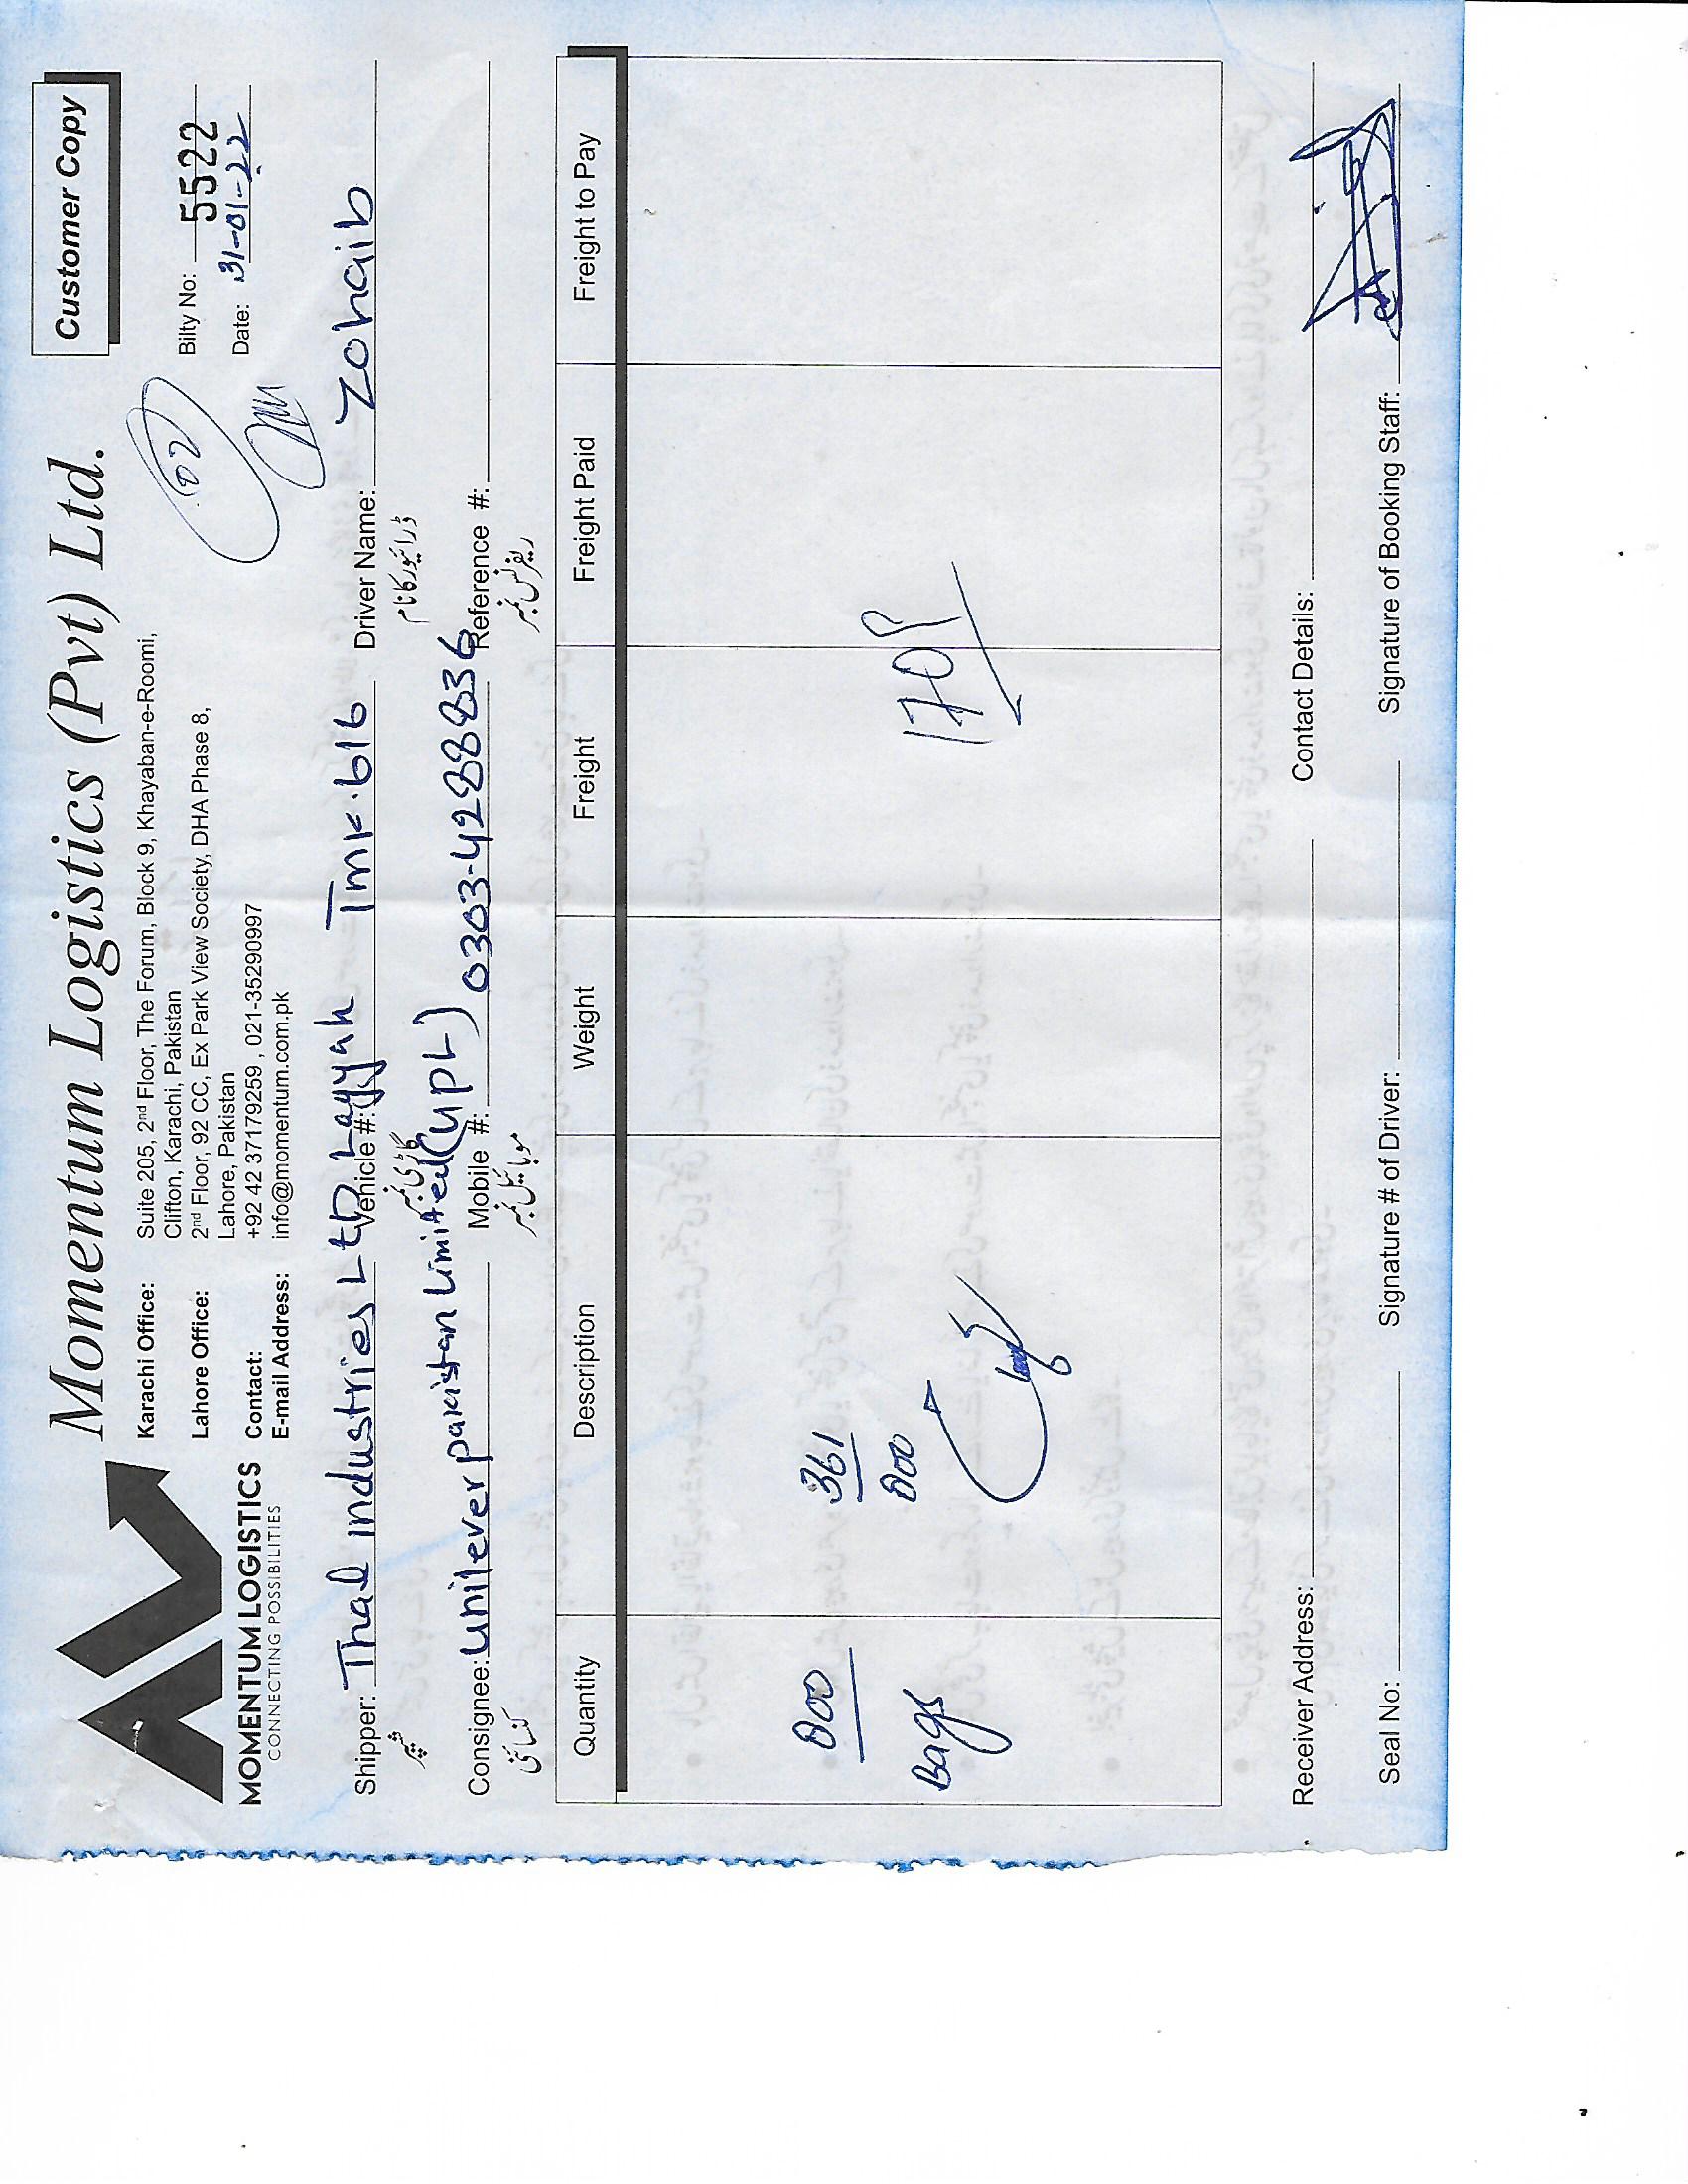 Customer Copy
Momentum Logistics (Pvt) Ltd.
MOMENTUM LOGISTICS
CONNECTING POSSIBILITIES
Karachi Office: Suite 205, 2nd Floor, The Forum, Block 9, Khayaban-e-Roomi,
Clifton, Karachi, Pakistan
Lahore Office: 2nd Floor, 92 CC, Ex Park View Society, DHA Phase 8,
Lahore, Pakistan
Contact: +92 42 37179259 , 021-35290997
E-mail Address: info@momentum.com.pk
Bilty No: 5522
Date: 31-01-22
Shipper: Thal industries LtD Layyah Vehicle #: Tmk.616 Driver Name: Zohaib
شپر گاڑی نمبر ڈرائیور کا نام
Consignee: unilever pakistan Limited (upL) Mobile #: 0303-4288836 Reference #:
کنسائنی موبائیل نمبر ریفرنس نمبر
Quantity Description Weight Freight Freight Paid Freight to Pay
361
Bags
Receiver Address: Contact Details:
Seal No: Signature # of Driver: Signature of Booking Staff: